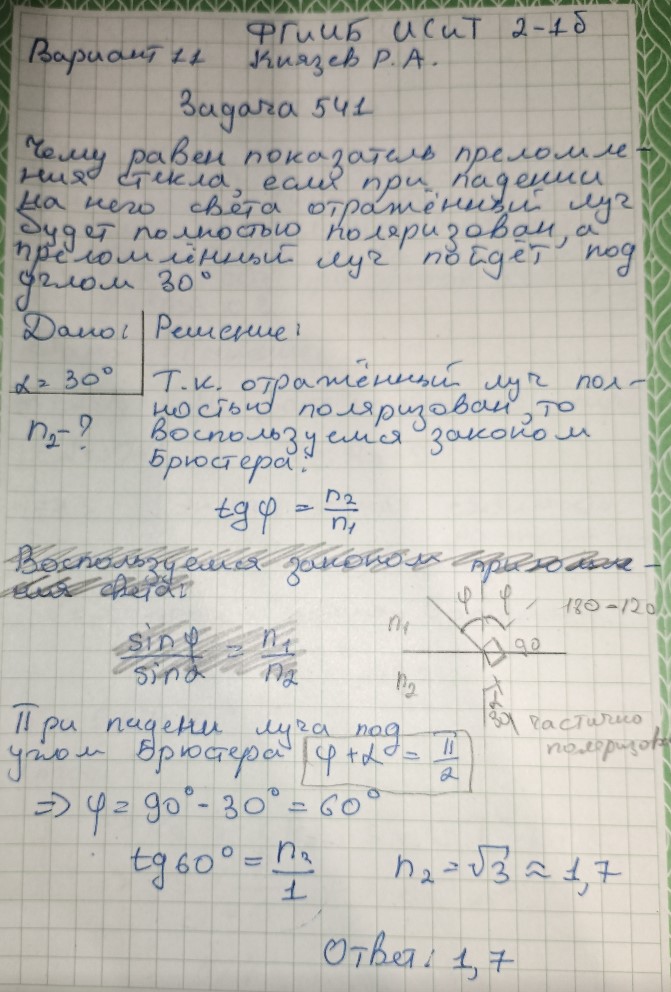 ФГиИБ ИСиТ 2-1б
Вариант 11 Князев Р.А.
Задача 541
Чему равен показатель преломле-
ния стекла, если при падении
на него света отражённый луч
будет полностью поляризован, а
преломлённый луч пойдёт под
углом 30°
Дано: Решение:
α = 30°
n₂ - ?
Т.к. отражённый луч пол-
ностью поляризован, то
воспользуемся законом
Брюстера:
tg φ = n₂/n₁
Воспользуемся законом преломле-
ния света:
sin φ/sin α = n₁/n₂
φ φ 180-120
n₁ 90
n₂
30 частично
поляризов
При падени луча под
углом Брюстера φ + α = π/2
=> φ = 90° - 30° = 60°
tg 60° = n₂/1 n₂ = √3 ≈ 1,7
Ответ: 1,7